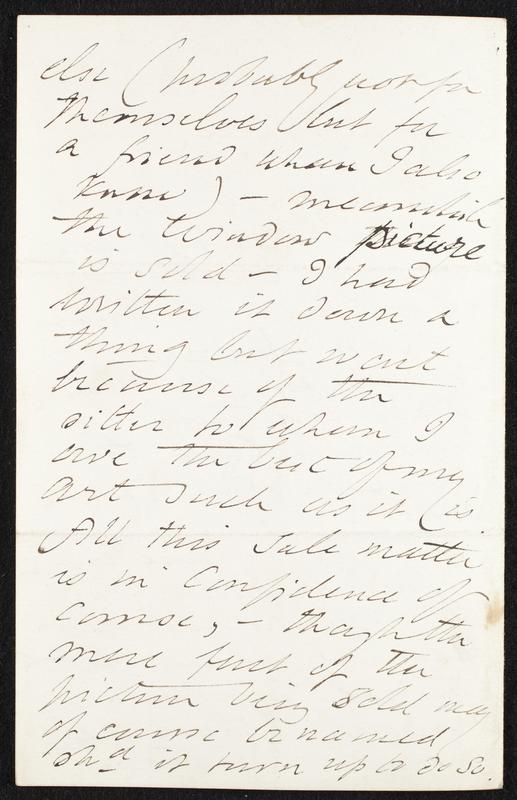 else (probably not for
themselves but for
a friend whom I also
know) – meanwhile
the Window picture
is sold – I had
written it down a
thing but
because of the
sitter to whom I
owe the best of my
art such as it is
All this sale matter
is in confidence of
course, – though the
mere fact of the
picture being sold may
of course be named
shd it turn up to do so.